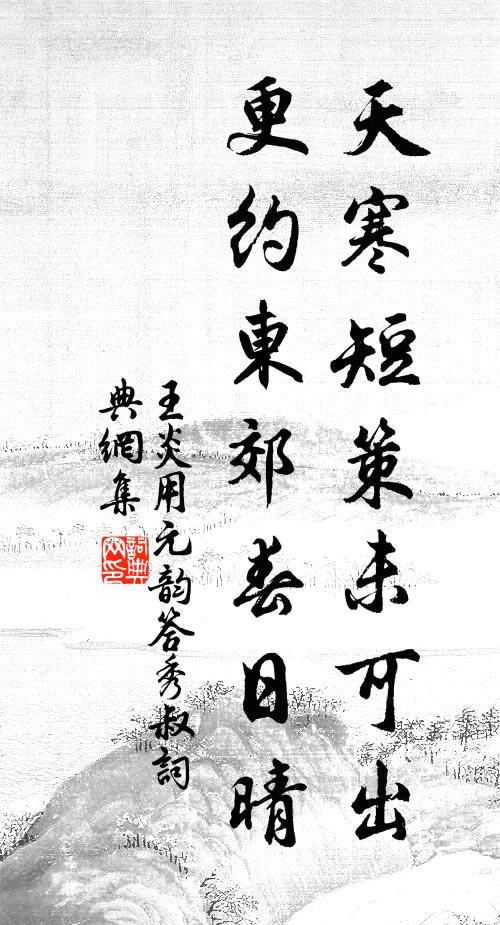 天寒短策未可出
更约東郊春日晴
王炎用元韵答秀叔詞
典網集
詞典网印